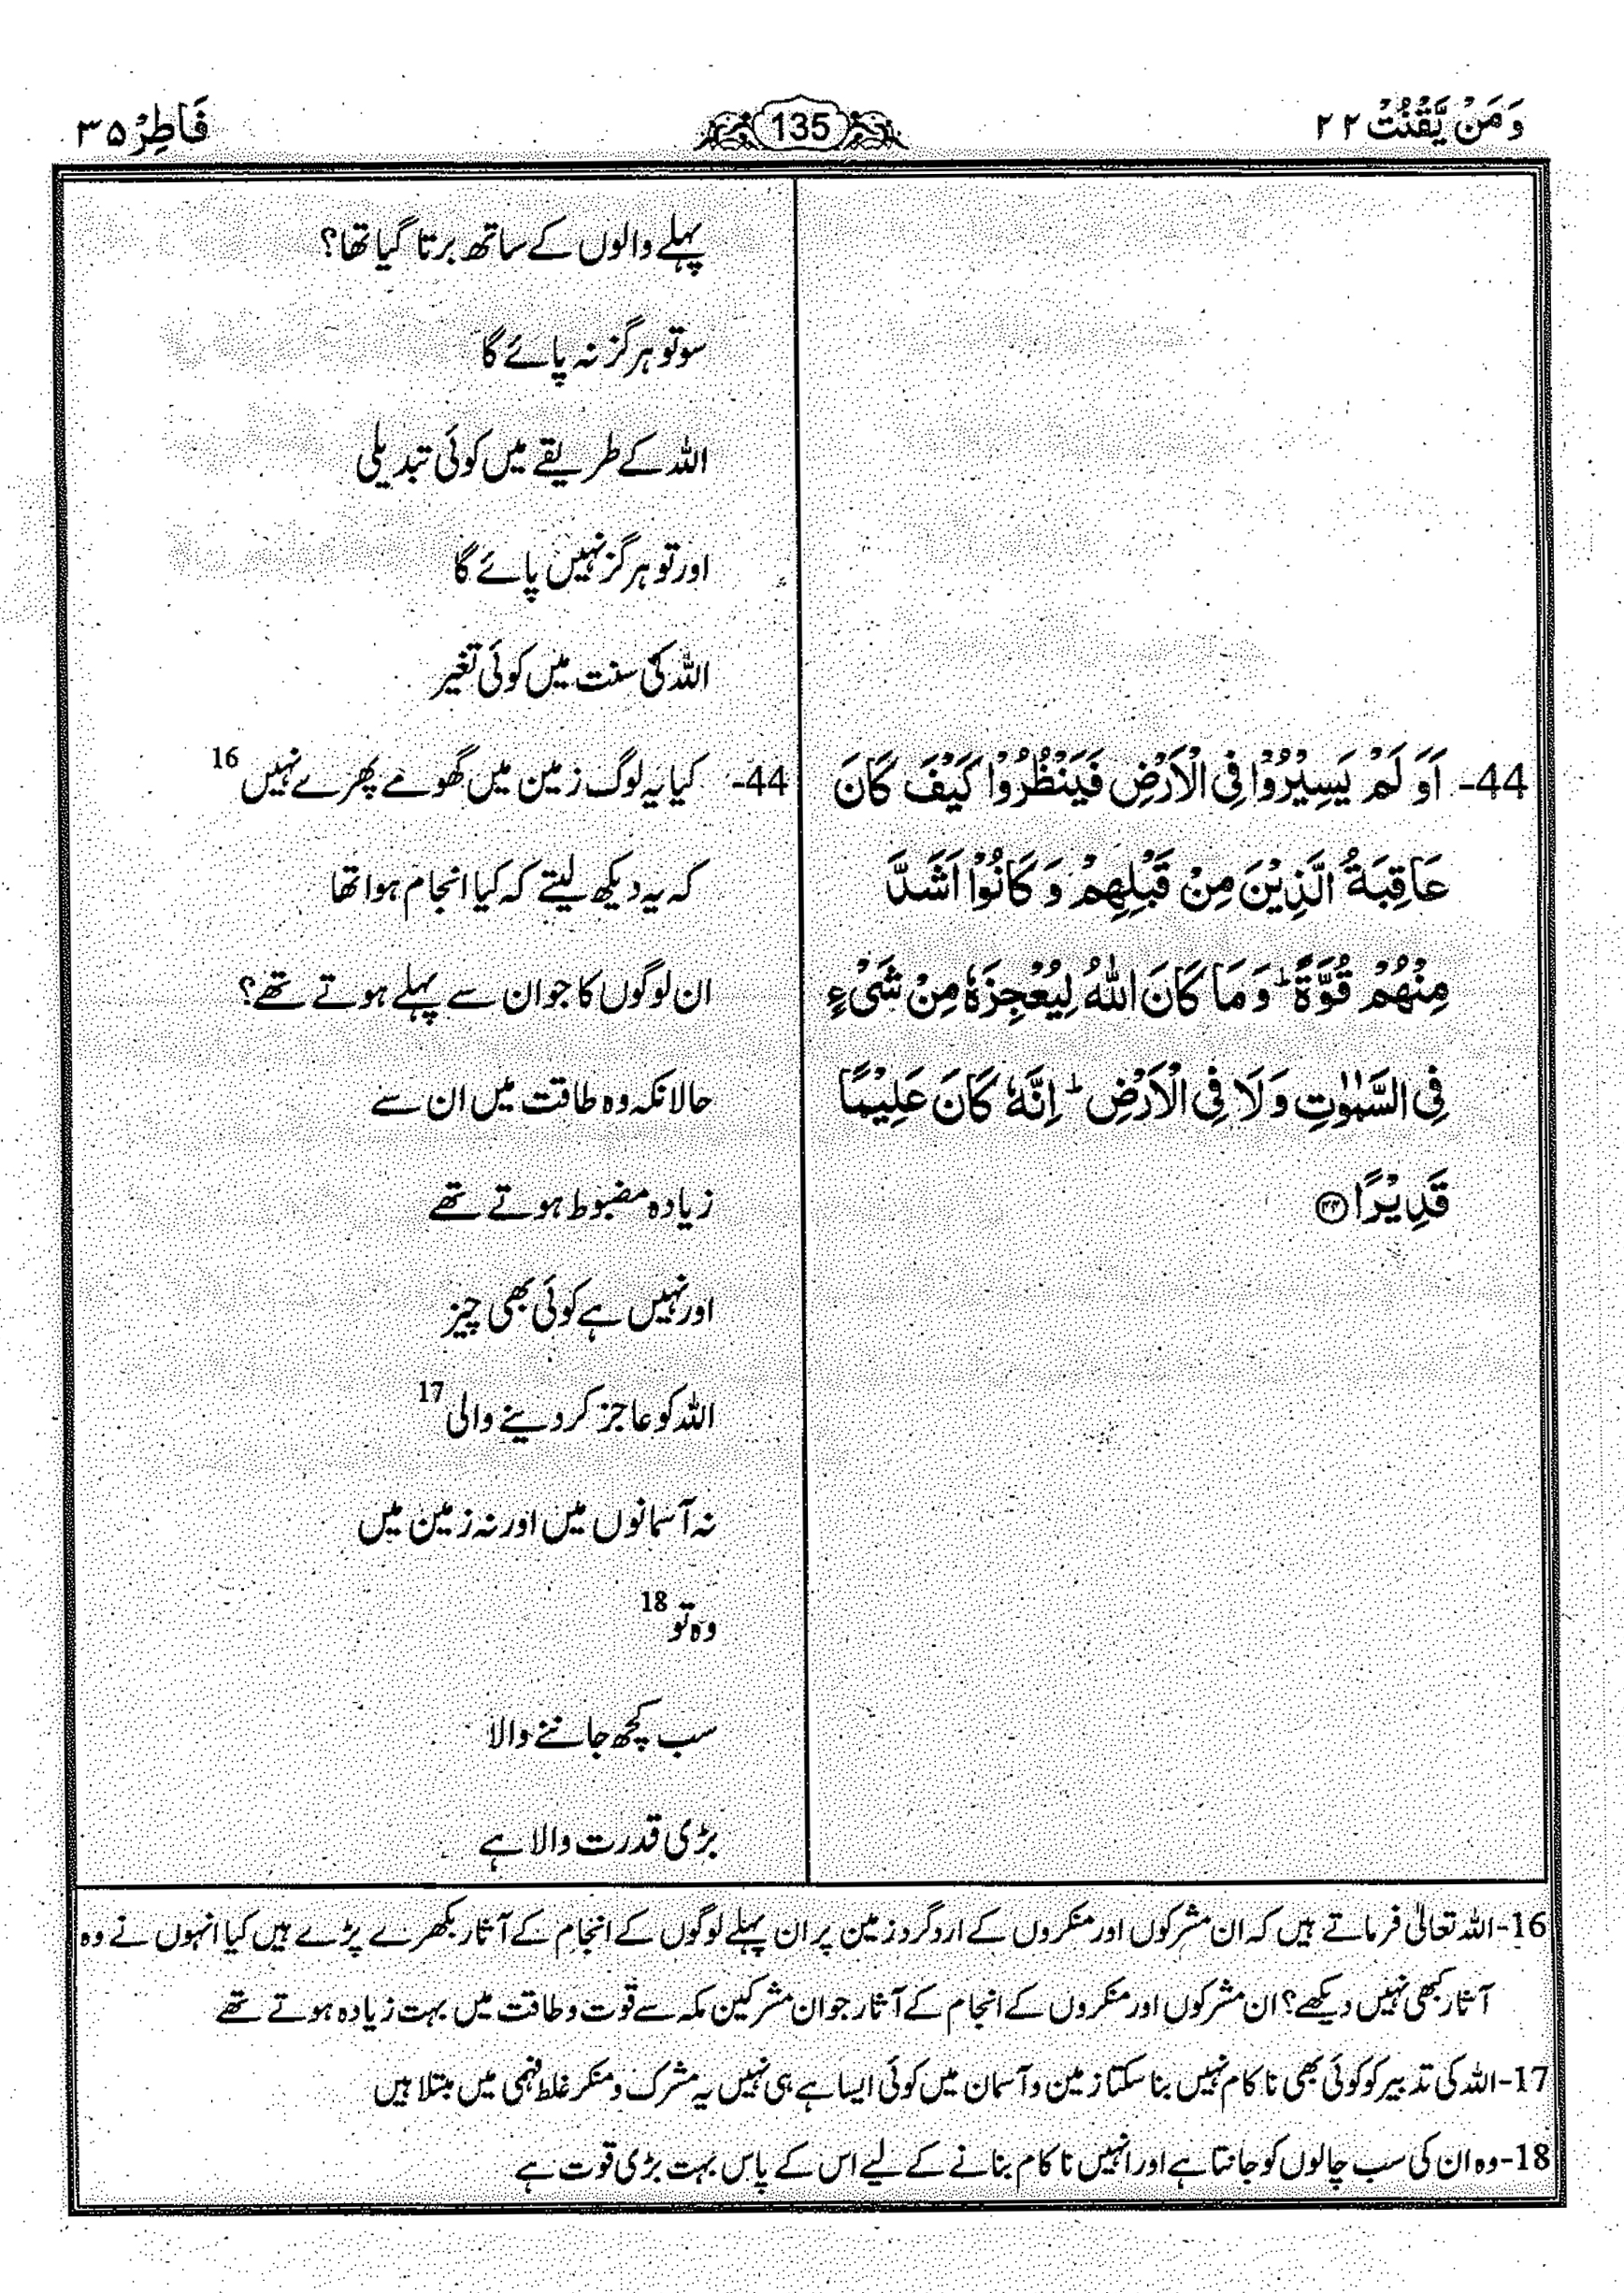 وَمَنْ يَّقْنُتْ ۲۲
135
فَاطِر ۳۵
پہلے والوں کے ساتھ برتا گیا تھا؟
سو تو ہرگز نہ پائے گا
اللہ کے طریقے میں کوئی تبدیلی
اور تو ہرگز نہیں پائے گا
اللہ کی سنت میں کوئی تغیر
44- اَوَ لَمْ يَسِيْرُوْا فِى الْاَرْضِ فَيَنْظُرُوْا كَيْفَ كَانَ
عَاقِبَةُ الَّذِيْنَ مِنْ قَبْلِهِمْ وَ كَانُوْۤا اَشَدَّ
مِنْهُمْ قُوَّةً ؕ وَ مَا كَانَ اللّٰهُ لِيُعْجِزَهٗ مِنْ شَىْءٍ
فِى السَّمٰوٰتِ وَ لَا فِى الْاَرْضِ ؕ اِنَّهٗ كَانَ عَلِيْمًا
قَدِيْرًا ﴿۴۴﴾
44- کیا یہ لوگ زمین میں گھومے پھرے نہیں 16
کہ یہ دیکھ لیتے کہ کیا انجام ہوا تھا
ان لوگوں کا جو ان سے پہلے ہوتے تھے؟
حالانکہ وہ طاقت میں ان سے
زیادہ مضبوط ہوتے تھے
اور نہیں ہے کوئی بھی چیز
اللہ کو عاجز کر دینے والی 17
نہ آسمانوں میں اور نہ زمین میں
وہ تو 18
سب کچھ جاننے والا
بڑی قدرت والا ہے
16-اللہ تعالیٰ فرماتے ہیں کہ ان مشرکوں اور منکروں کے اردگرد زمین پر ان پہلے لوگوں کے انجام کے آثار بکھرے پڑے ہیں کیا انہوں نے وہ
آثار کبھی نہیں دیکھے؟ ان مشرکوں اور منکروں کے انجام کے آثار جو ان مشرکین مکہ سے قوت و طاقت میں بہت زیادہ ہوتے تھے
17-اللہ کی تدبیر کو کوئی بھی ناکام نہیں بنا سکتا زمین و آسمان میں کوئی ایسا ہے ہی نہیں یہ مشرک و منکر غلط فہمی میں مبتلا ہیں
18-وہ ان کی سب چالوں کو جانتا ہے اور انہیں ناکام بنانے کے لیے اس کے پاس بہت بڑی قوت ہے